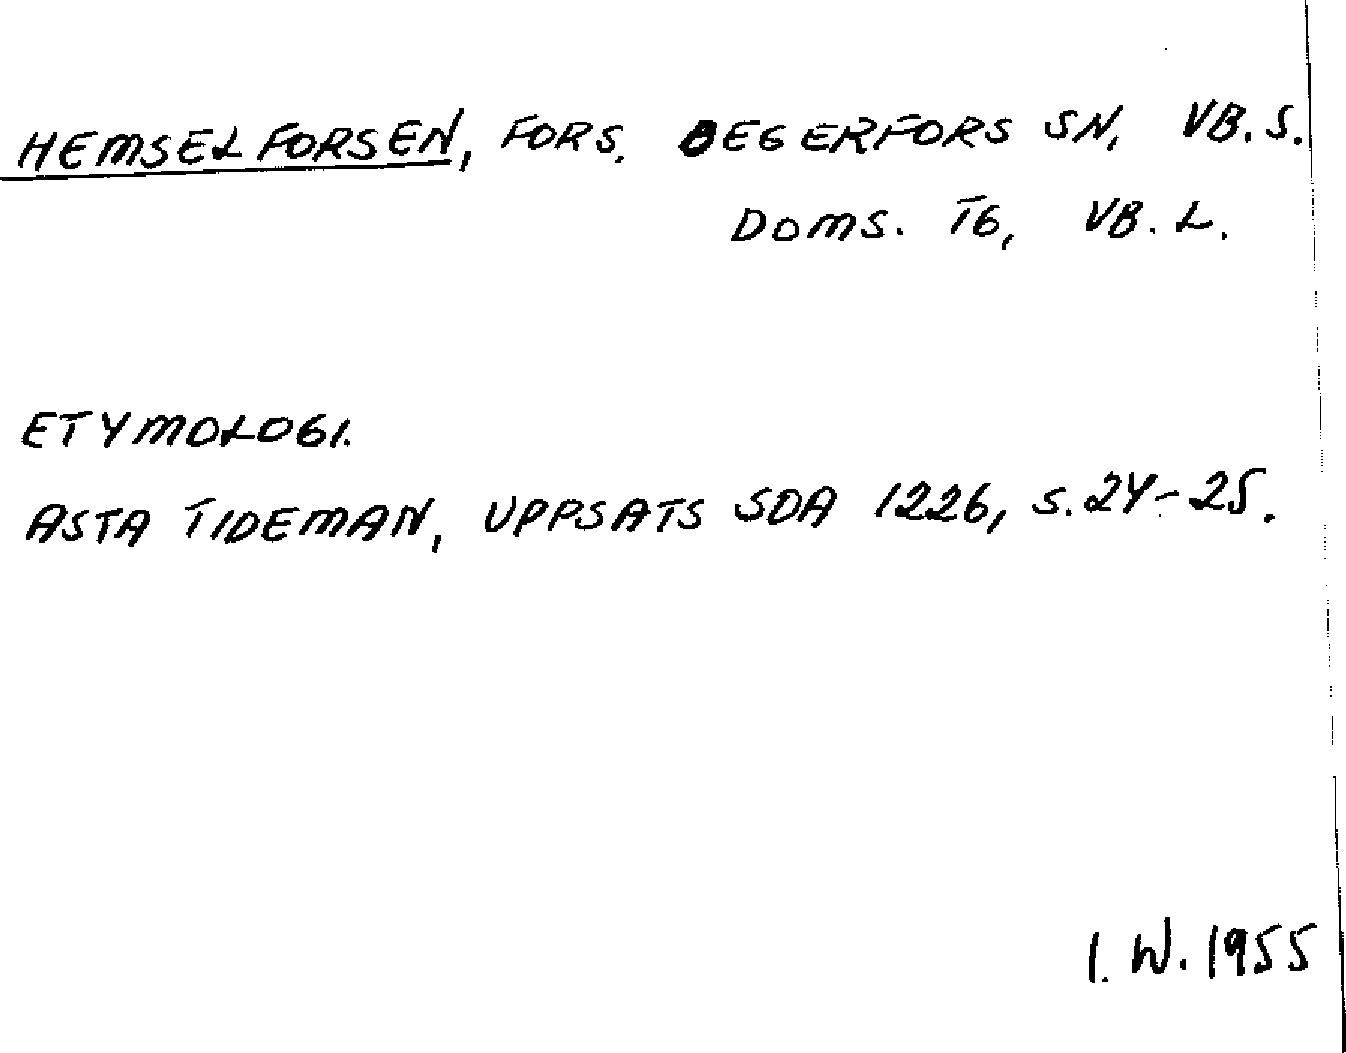 HEMSELFORSEN, FORS. DEGERFORS SN, VB. S.
DOMS. TG, VB. L.
ETYMOLOGI.
ASTA TIDEMAN, UPPSATS SDA 1226, S. 24-25.
I. W. 1955